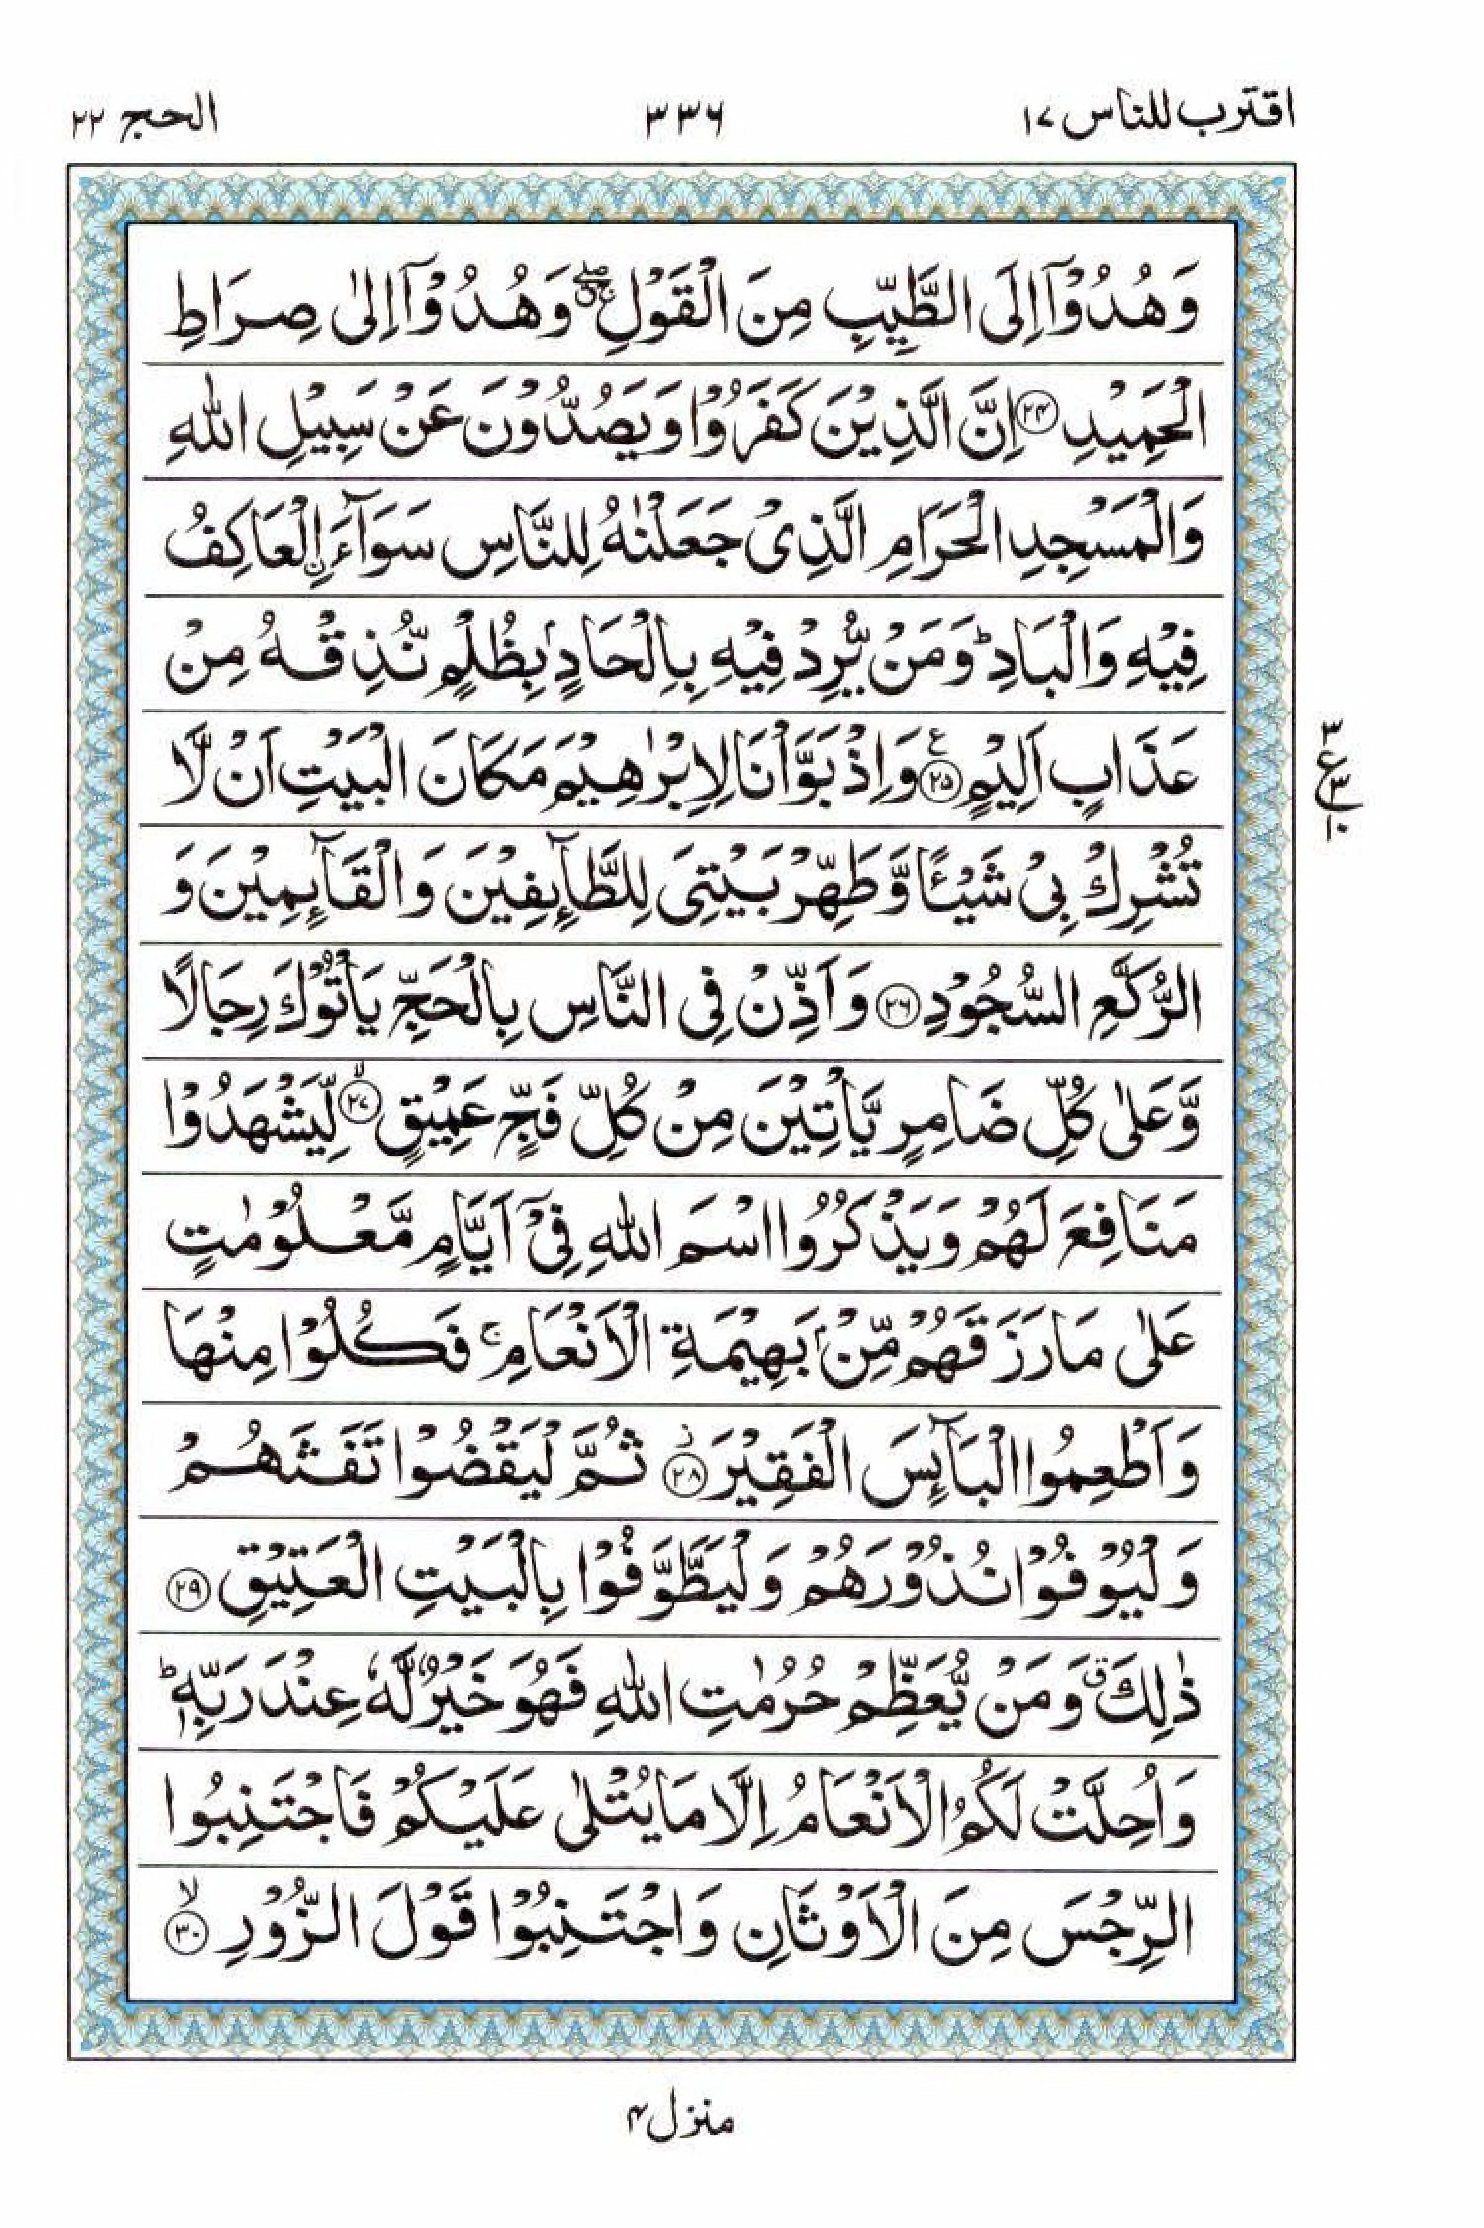 اقترب للناس ۱۷
۳۳۶
الحج ۲۲
وَهُدُوْۤا اِلَى الطَّيِّبِ مِنَ الْقَوْلِ ۖۚ وَهُدُوْۤا اِلٰى صِرَاطِ
الْحَمِيْدِ ﴿۲۴﴾ اِنَّ الَّذِيْنَ كَفَرُوْا وَيَصُدُّوْنَ عَنْ سَبِيْلِ اللّٰهِ
وَالْمَسْجِدِ الْحَرَامِ الَّذِىْ جَعَلْنٰهُ لِلنَّاسِ سَوَآءَ ۨالْعَاكِفُ
فِيْهِ وَالْبَادِ ؕ وَمَنْ يُّرِدْ فِيْهِ بِاِلْحَادٍۭ بِظُلْمٍ نُّذِقْهُ مِنْ
عَذَابٍ اَلِيْمٍ ﴿۲۵﴾ ع وَاِذْ بَوَّاْنَا لِاِبْرٰهِيْمَ مَكَانَ الْبَيْتِ اَنْ لَّا
تُشْرِكْ بِىْ شَيْـًٔا وَّطَهِّرْ بَيْتِىَ لِلطَّآئِفِيْنَ وَالْقَآئِمِيْنَ وَ
الرُّكَّعِ السُّجُوْدِ ﴿۲۶﴾ وَاَذِّنْ فِى النَّاسِ بِالْحَجِّ يَاْتُوْكَ رِجَالًا
وَّعَلٰى كُلِّ ضَامِرٍ يَّاْتِيْنَ مِنْ كُلِّ فَجٍّ عَمِيْقٍ ۙ﴿۲۷﴾ لِّيَشْهَدُوْا
مَنَافِعَ لَهُمْ وَيَذْكُرُوا اسْمَ اللّٰهِ فِىْۤ اَيَّامٍ مَّعْلُوْمٰتٍ
عَلٰى مَا رَزَقَهُمْ مِّنْۢ بَهِيْمَةِ الْاَنْعَامِ ۚ فَكُلُوْا مِنْهَا
وَاَطْعِمُوا الْبَآئِسَ الْفَقِيْرَ ﴿۲۸﴾ ز ثُمَّ لْيَقْضُوْا تَفَثَهُمْ
وَلْيُوْفُوْا نُذُوْرَهُمْ وَلْيَطَّوَّفُوْا بِالْبَيْتِ الْعَتِيْقِ ﴿۲۹﴾
ذٰلِكَ ق وَمَنْ يُّعَظِّمْ حُرُمٰتِ اللّٰهِ فَهُوَ خَيْرٌ لَّهٗ عِنْدَ رَبِّهٖ ؕ
وَاُحِلَّتْ لَكُمُ الْاَنْعَامُ اِلَّا مَا يُتْلٰى عَلَيْكُمْ فَاجْتَنِبُوا
الرِّجْسَ مِنَ الْاَوْثَانِ وَاجْتَنِبُوْا قَوْلَ الزُّوْرِ ۙ﴿۳۰﴾
۳
ع ۳
۱۰
منزل ۴